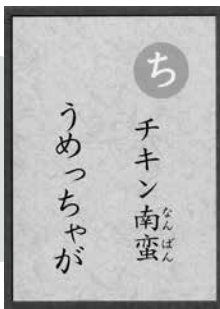 ち
チキン南蛮
なんばん
うめっちゃが